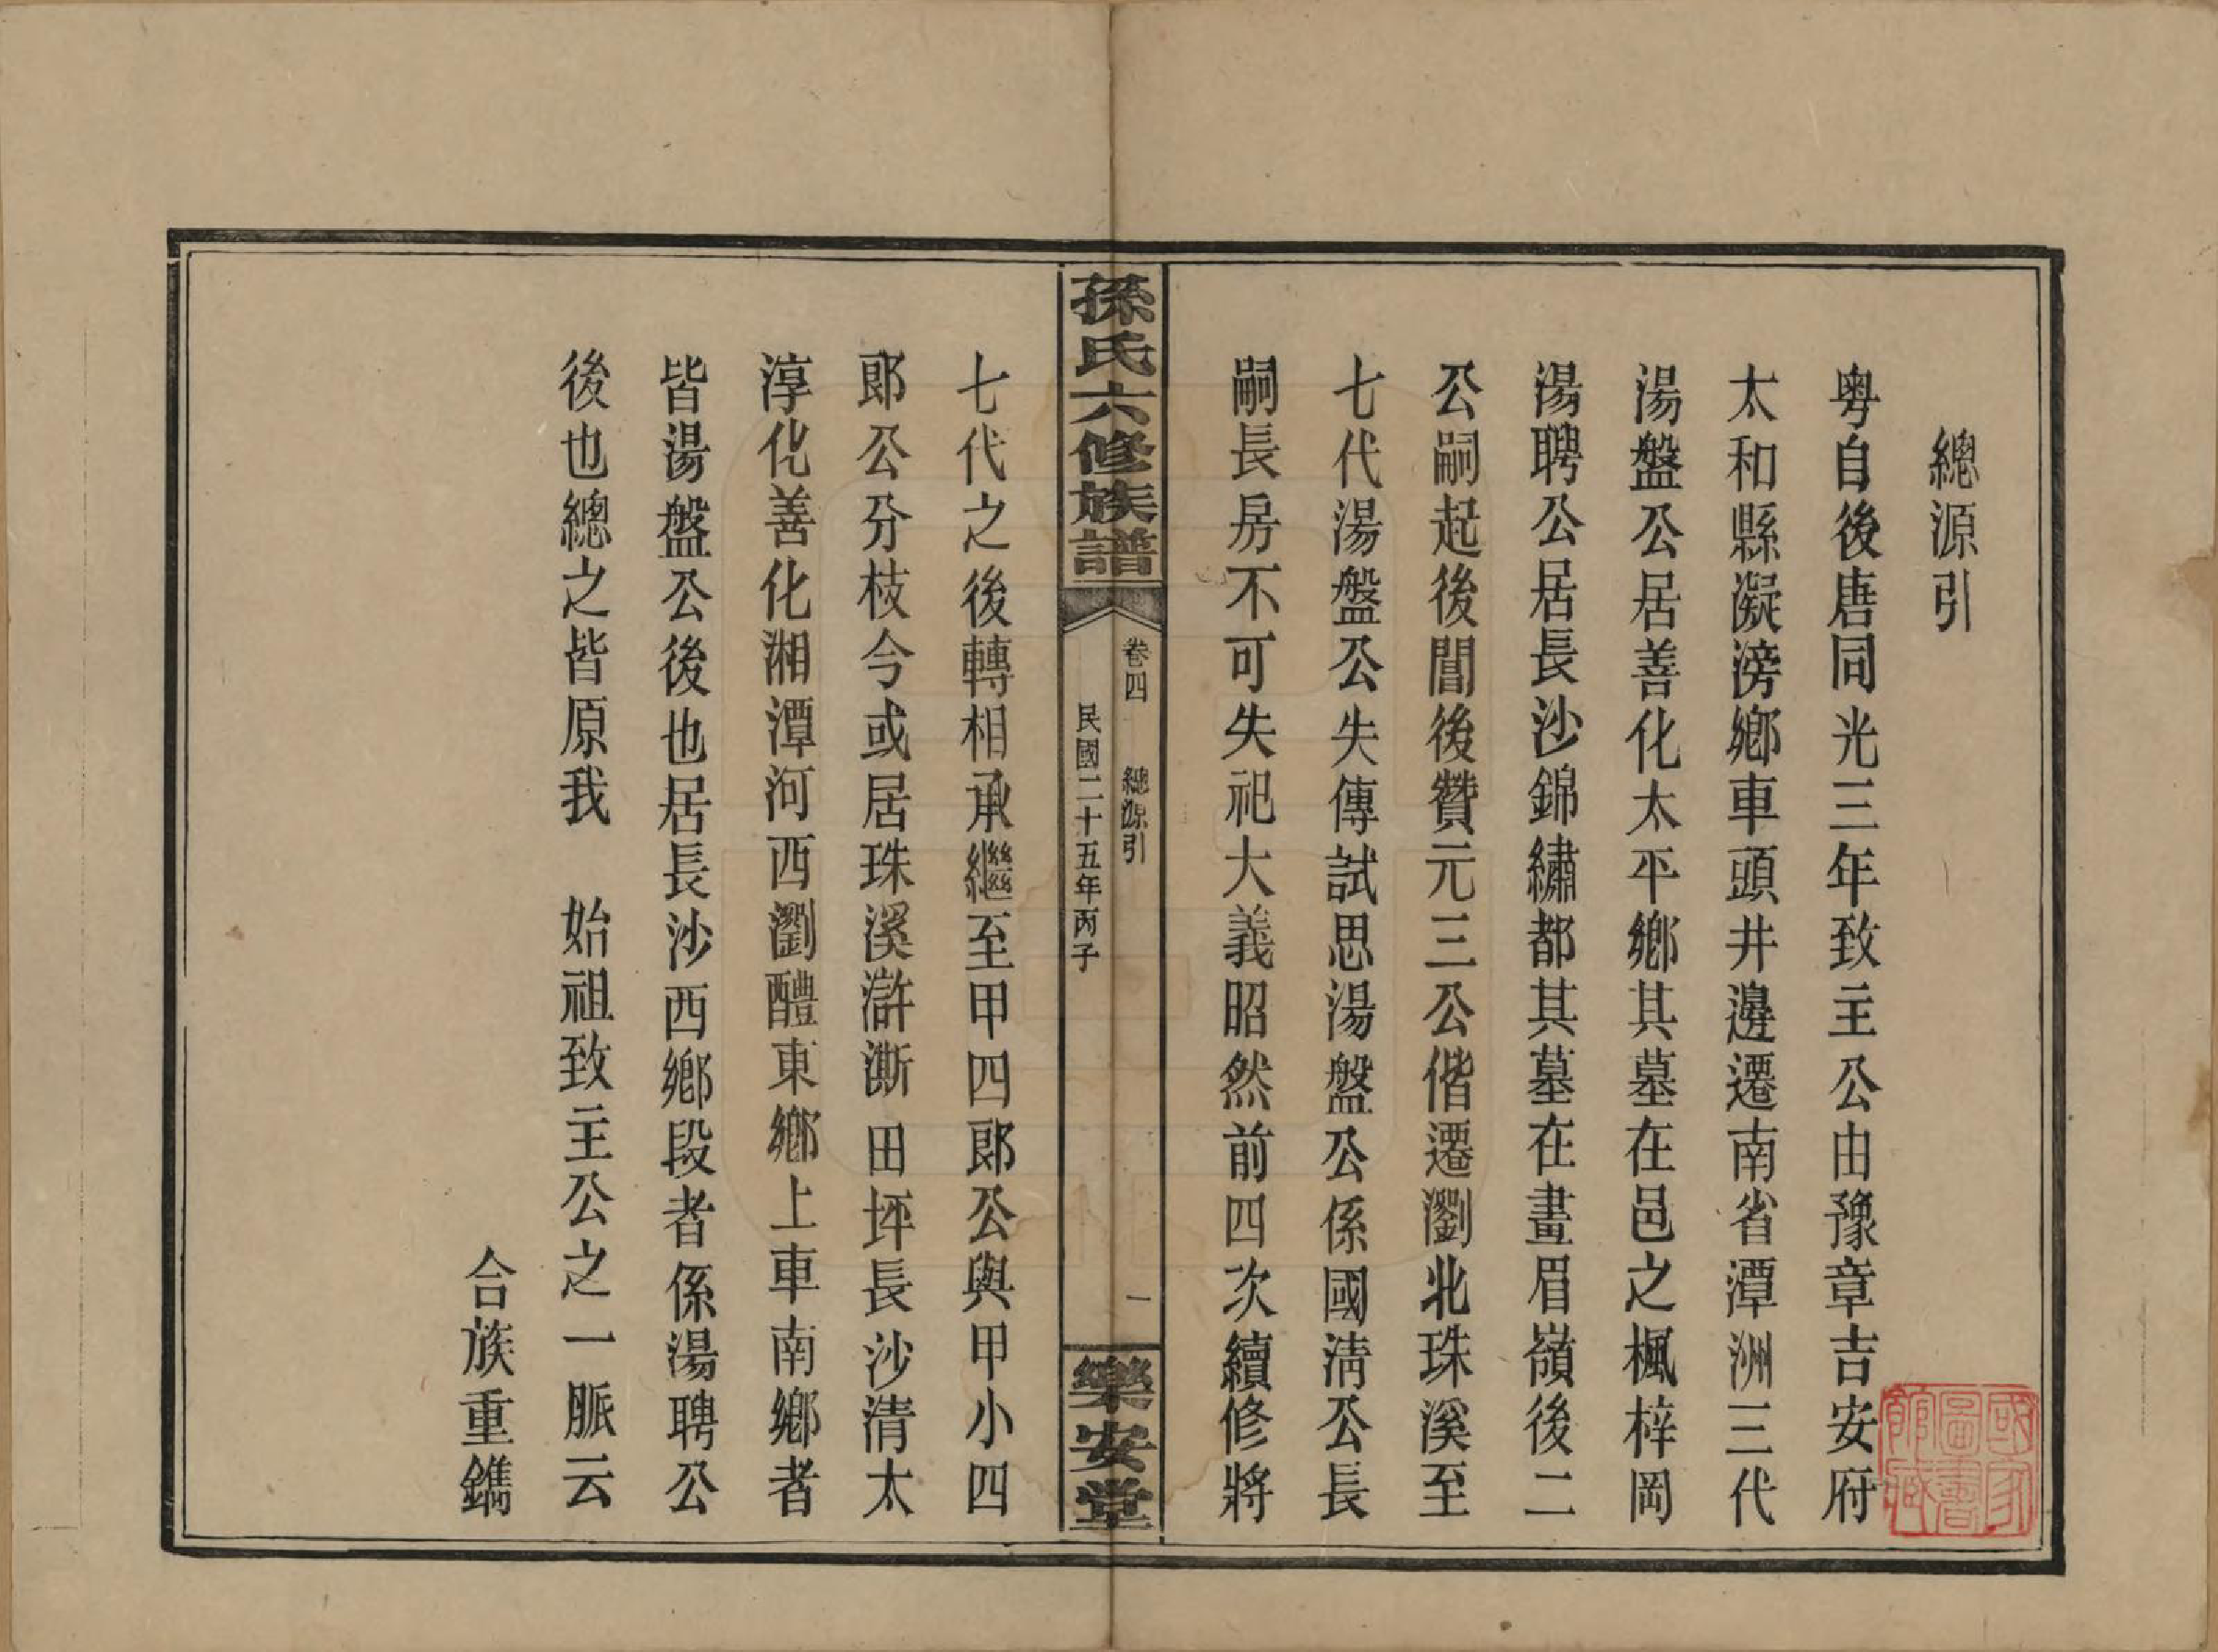 總源引
粵自後唐同光三年致主公由豫章吉安府
太和縣凝滂鄉車頭井邊遷南省潭洲三代
湯盤公居善化太平鄉其墓在邑之楓梓岡
湯聘公居長沙錦繡都其墓在畫眉嶺後二
公嗣起後閶後贊元三公偕遷瀏北珠溪至
七代湯盤公失傳試思湯盤公係國淸公長
嗣長房不可失祀大義昭然前四次續修將
孫氏六修族譜
卷四 總源引
民國二十五年丙子
一
樂安堂
七代之後轉相承繼至甲四郞公與甲小四
郞公分枝今或居珠溪滸澌田坪長沙清太
淳化善化湘潭河西瀏醴東鄉上車南鄉者
皆湯盤公後也居長沙西鄉段者係湯聘公
後也總之皆原我 始祖致主公之一脈云
合族重鐫
國家
圖書
館藏